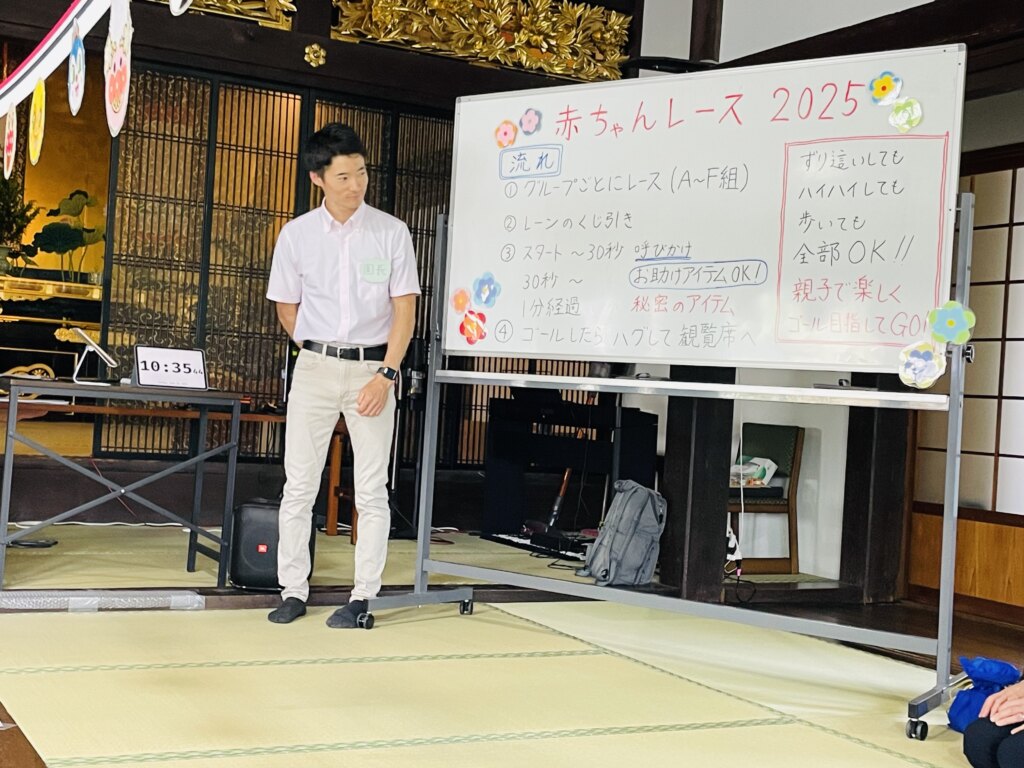 赤ちゃんレース 2025
流れ
① グループごとにレース (A~F組)
② レーンのくじ引き
③ スタート ~30秒 呼びかけ
30秒 ~ お助けアイテムOK!
1分経過 秘密のアイテム
④ ゴールしたら ハグして 観覧席へ
ずり這いしても
ハイハイしても
歩いても
全部OK!!
親子で楽しく
ゴール目指してGO!
園長
10:35 44
JBL